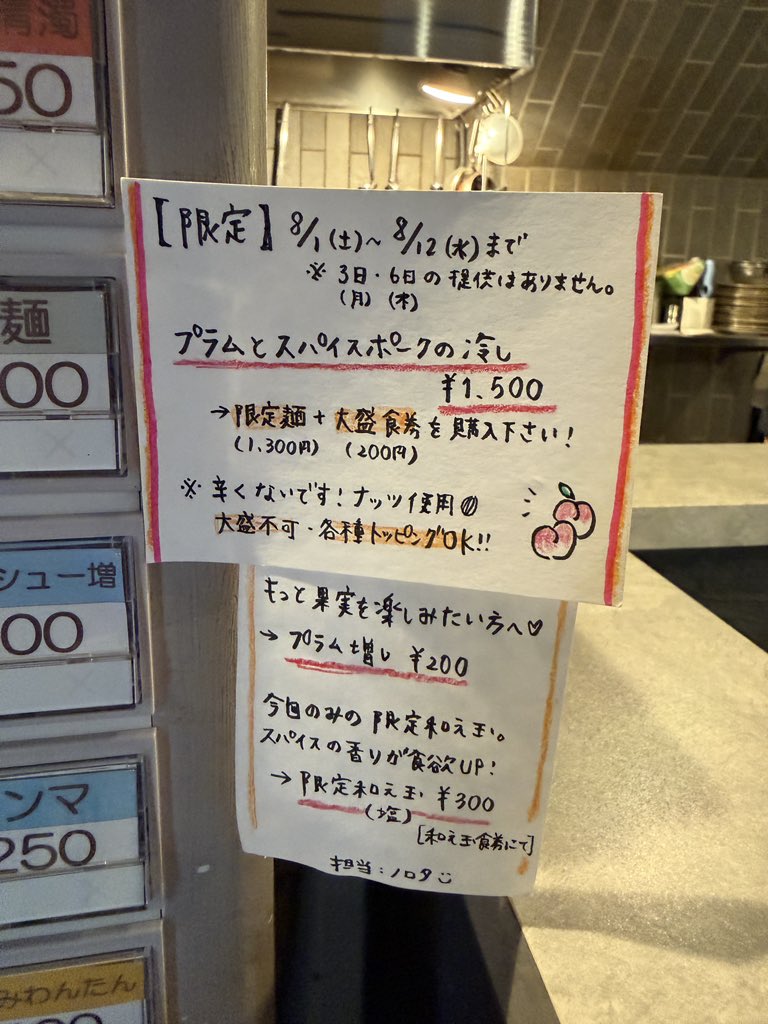 清濁
50
麺
00
シュー増
00
ンマ
250
みわんたん
【限定】8/1(土)~8/12(水)まで
※3日・6日の提供はありません。
(月)(木)
プラムとスパイスポークの冷し
¥1,500
→限定麺+大盛食券を購入下さい!
(1,300円)(200円)
※辛くないです!ナッツ使用
大盛不可・各種トッピングOK!!
もっと果実を楽しみたい方へ♡
→プラム増し ¥200
今回のみの限定和え玉。
スパイスの香りが食欲UP!
→限定和え玉 ¥300
(塩)
[和え玉食券にて]
担当:ノロタ